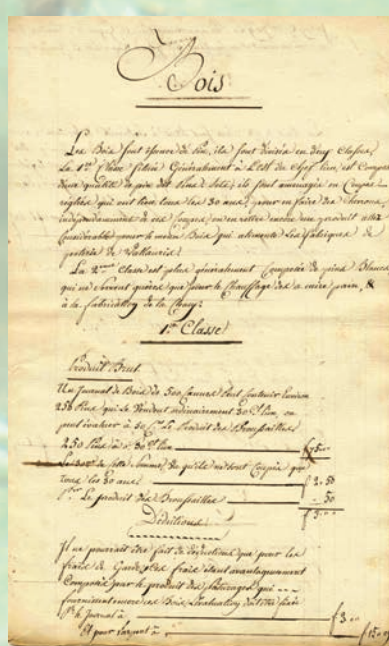 Bois
Les Bois sont essence de Pin, ils sont divisés en deux Classes,
La 1ere Généralement à L'Est du Chef lieu, est Composée
d'une qualité de pin dit Pins ils sont aménagés en Coupes
réglées qui ont lieu tous les 30 ans, pour en faire des
indépendamment de ces Coupes, on en retire encore un produit assez
Considérable pour le menu Bois qui alimente les fabriques de
poterie de Vallauris.
La 2eme Classe est plus généralement Composée de pins Blancs
qui ne servent guères que pour le Chauffage des a cuire pain, &
à la fabrication de la Chaux.
1ere Classe
Produit Brut
Un Journal de Bois de 500 Cannes peut contenir Environ
250 Pins qui se Vendent ordinairement 30 l'un, on
peut évaluer à 50 Ces Le Produit des Broussailles
250 Pins à 30 l'un f 75..
Le 30e de cette Somme, vu qu'ils ne sont Coupés que
tous les 30 ans f 2.50
Le produit des Broussailles . 50
f 3..
Déductions
Il ne pourrait être fait de déductions que pour les
frais de Garde, ces frais étant avantageusement
Compensés par le produit des pâturages qui
fournissent encore ces Bois, L'évaluation doit être fixée
Pr le Journal à f 3..
Et pour l'arpent à